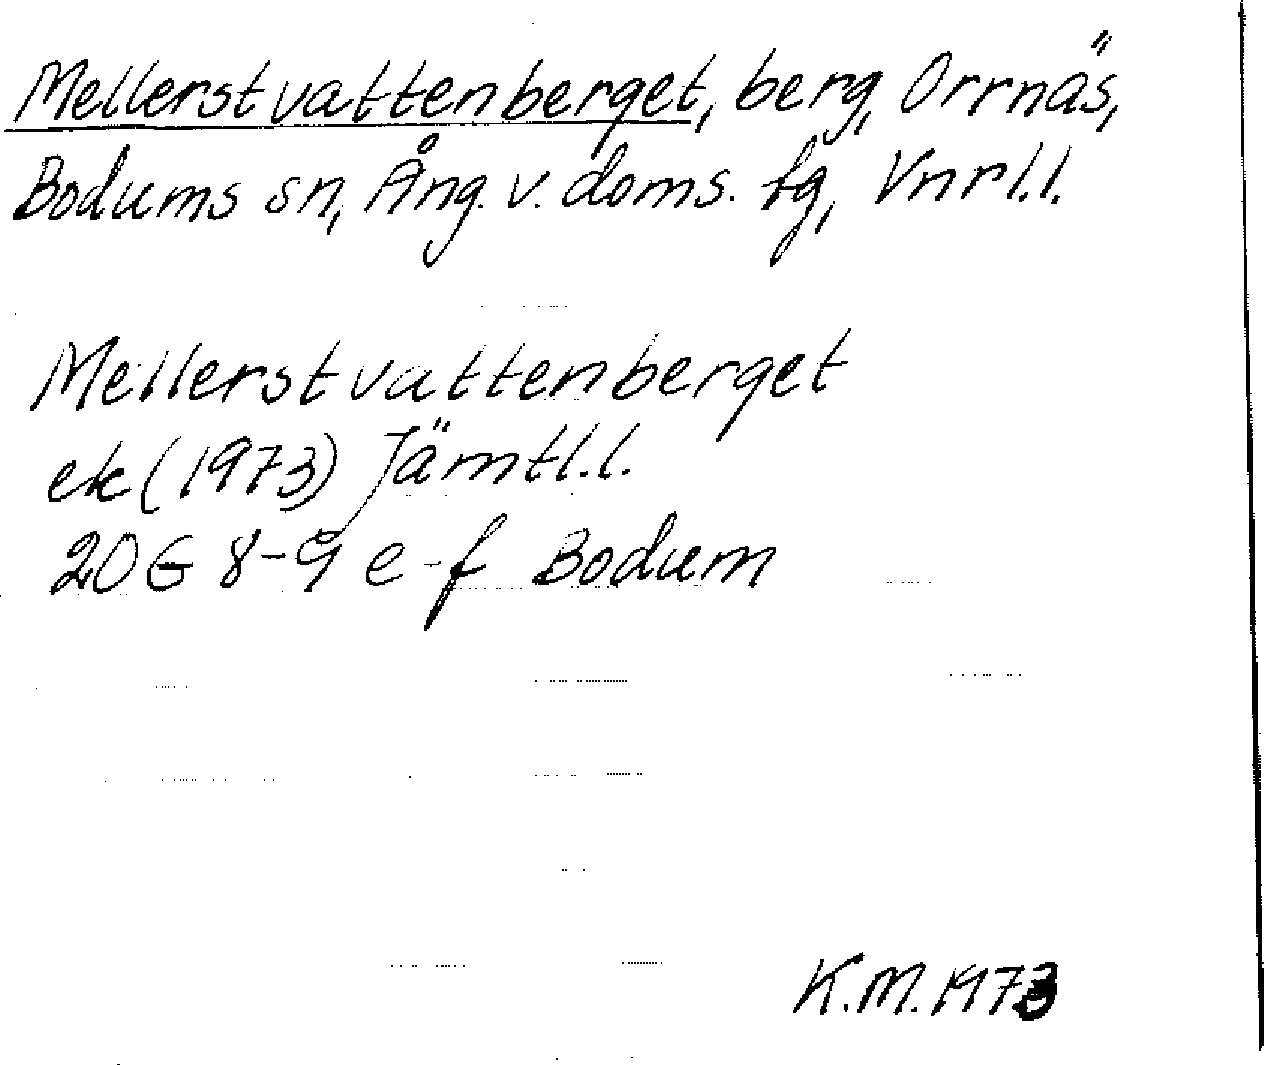 Mellerstvattenberget, berg, Orrnäs,
Bodums sn, Ång. v. doms. tg, Vnrl.l.
Mellerstvattenberget
ek (1973) Jämtl.l.
20G 8-9 e-f Bodum
K.M. 1973